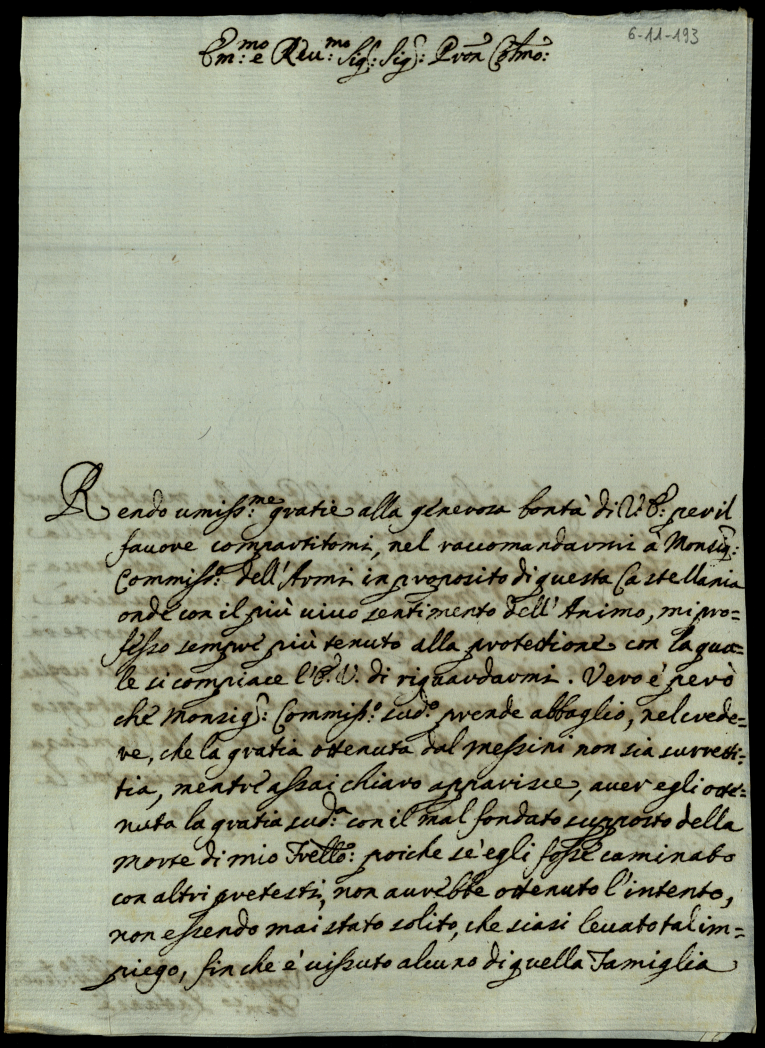 6-11-193
Em:mo e Reu:mo Sig: Sig: Pron Colmo:
Rendo umiss:me gratie alla generosa bontà di V: E: per il
fauore compartitomi, nel raccomandarmi à Monsig:
Commiss:o dell'Armi in proposito di questa Castellania
onde con il più uiuo sentimento dell'Animo, mi pro=
fesso sempre più tenuto alla protectione con la qua=
le si compiace l'E: V: di riguardarmi. Vero è però
che Monsig: Commiss:o sud:o prende abbaglio, nel crede=
re, che la gratia ottenuta dal Messini non sia surretti=
tia, mentre assai chiaro apparisce, auer egli otte=
nuta la gratia sud:a con il mal fondato supposto della
morte di mio Frello: poiche se egli fosse caminato
con altri pretesti, non aurebbe ottenuto l'intento,
non essendo mai stato solito, che siasi leuato tal im=
piego, fin che è uissuto alcuno di quella Famiglia